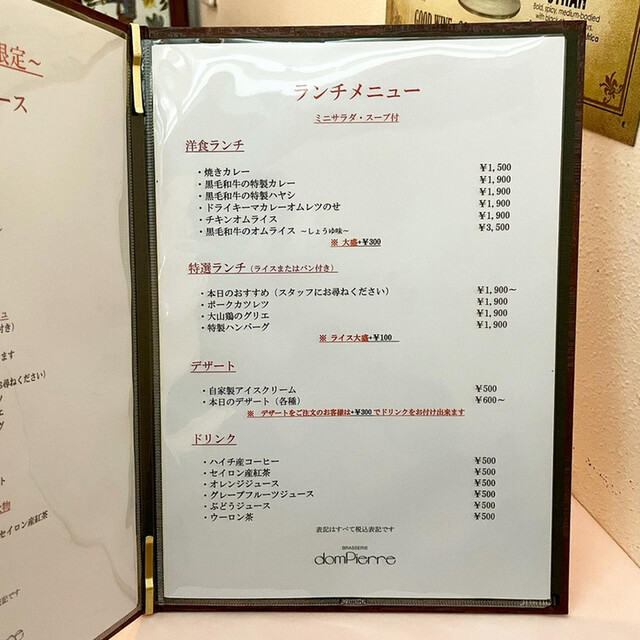 限定～
ース
き)
ます
お尋ねください)
エ
グ
ト
物
セイロン産紅茶
表記です
Bold, spicy, medium-bodied
ランチメニュー
ミニサラダ・スープ付
洋食ランチ
・焼きカレー ¥1,500
・黒毛和牛の特製カレー ¥1,900
・黒毛和牛の特製ハヤシ ¥1,900
・ドライキーマカレーオムレツのせ ¥1,900
・チキンオムライス ¥1,900
・黒毛和牛のオムライス ～しょうゆ味～ ¥3,500
※ 大盛+¥300
特選ランチ（ライスまたはパン付き）
・本日のおすすめ（スタッフにお尋ねください） ¥1,900～
・ポークカツレツ ¥1,900
・大山鶏のグリエ ¥1,900
・特製ハンバーグ ¥1,900
※ ライス大盛+¥100
デザート
・自家製アイスクリーム ¥500
・本日のデザート（各種） ¥600～
※ デザートをご注文のお客様は+¥300でドリンクをお付け出来ます
ドリンク
・ハイチ産コーヒー ¥500
・セイロン産紅茶 ¥500
・オレンジジュース ¥500
・グレープフルーツジュース ¥500
・ぶどうジュース ¥500
・ウーロン茶 ¥500
表記はすべて税込表記です
BRASSERIE
domPierre